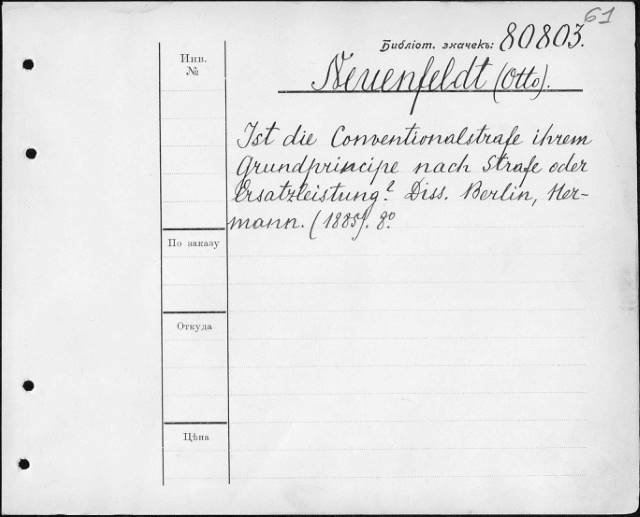 61
Библіот. значекъ: 80803.
Инв.
№
Neuenfeldt (Otto).
Ist die Conventionalstrafe ihrem
Grundprincipe nach Strafe oder
Ersatzleistung? Diss. Berlin, Her-
mann. (1885). 8°.
По заказу
Откуда
Цѣна